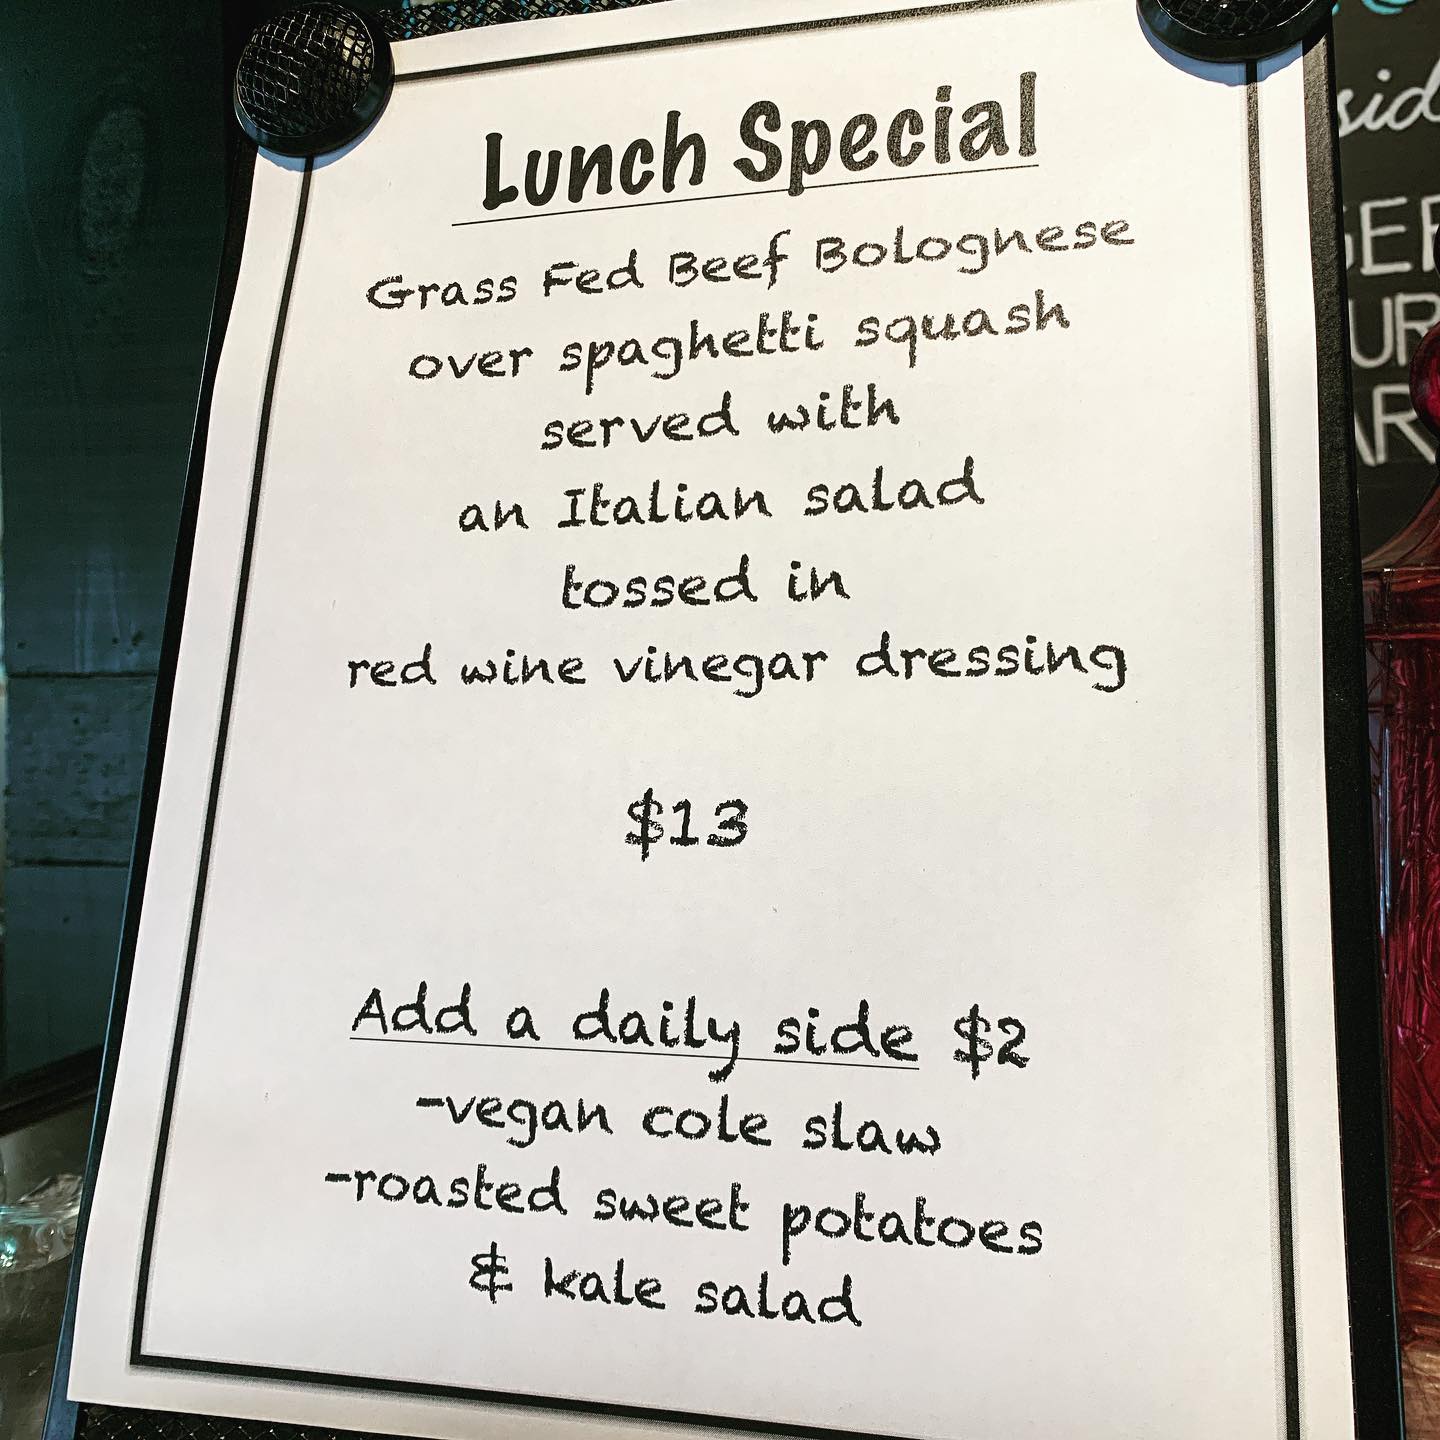 Lunch Special
Grass Fed Beef Bolognese
over spaghetti squash
served with
an Italian salad
tossed in
red wine vinegar dressing
$13
Add a daily side $2
-vegan cole slaw
-roasted sweet potatoes
& kale salad